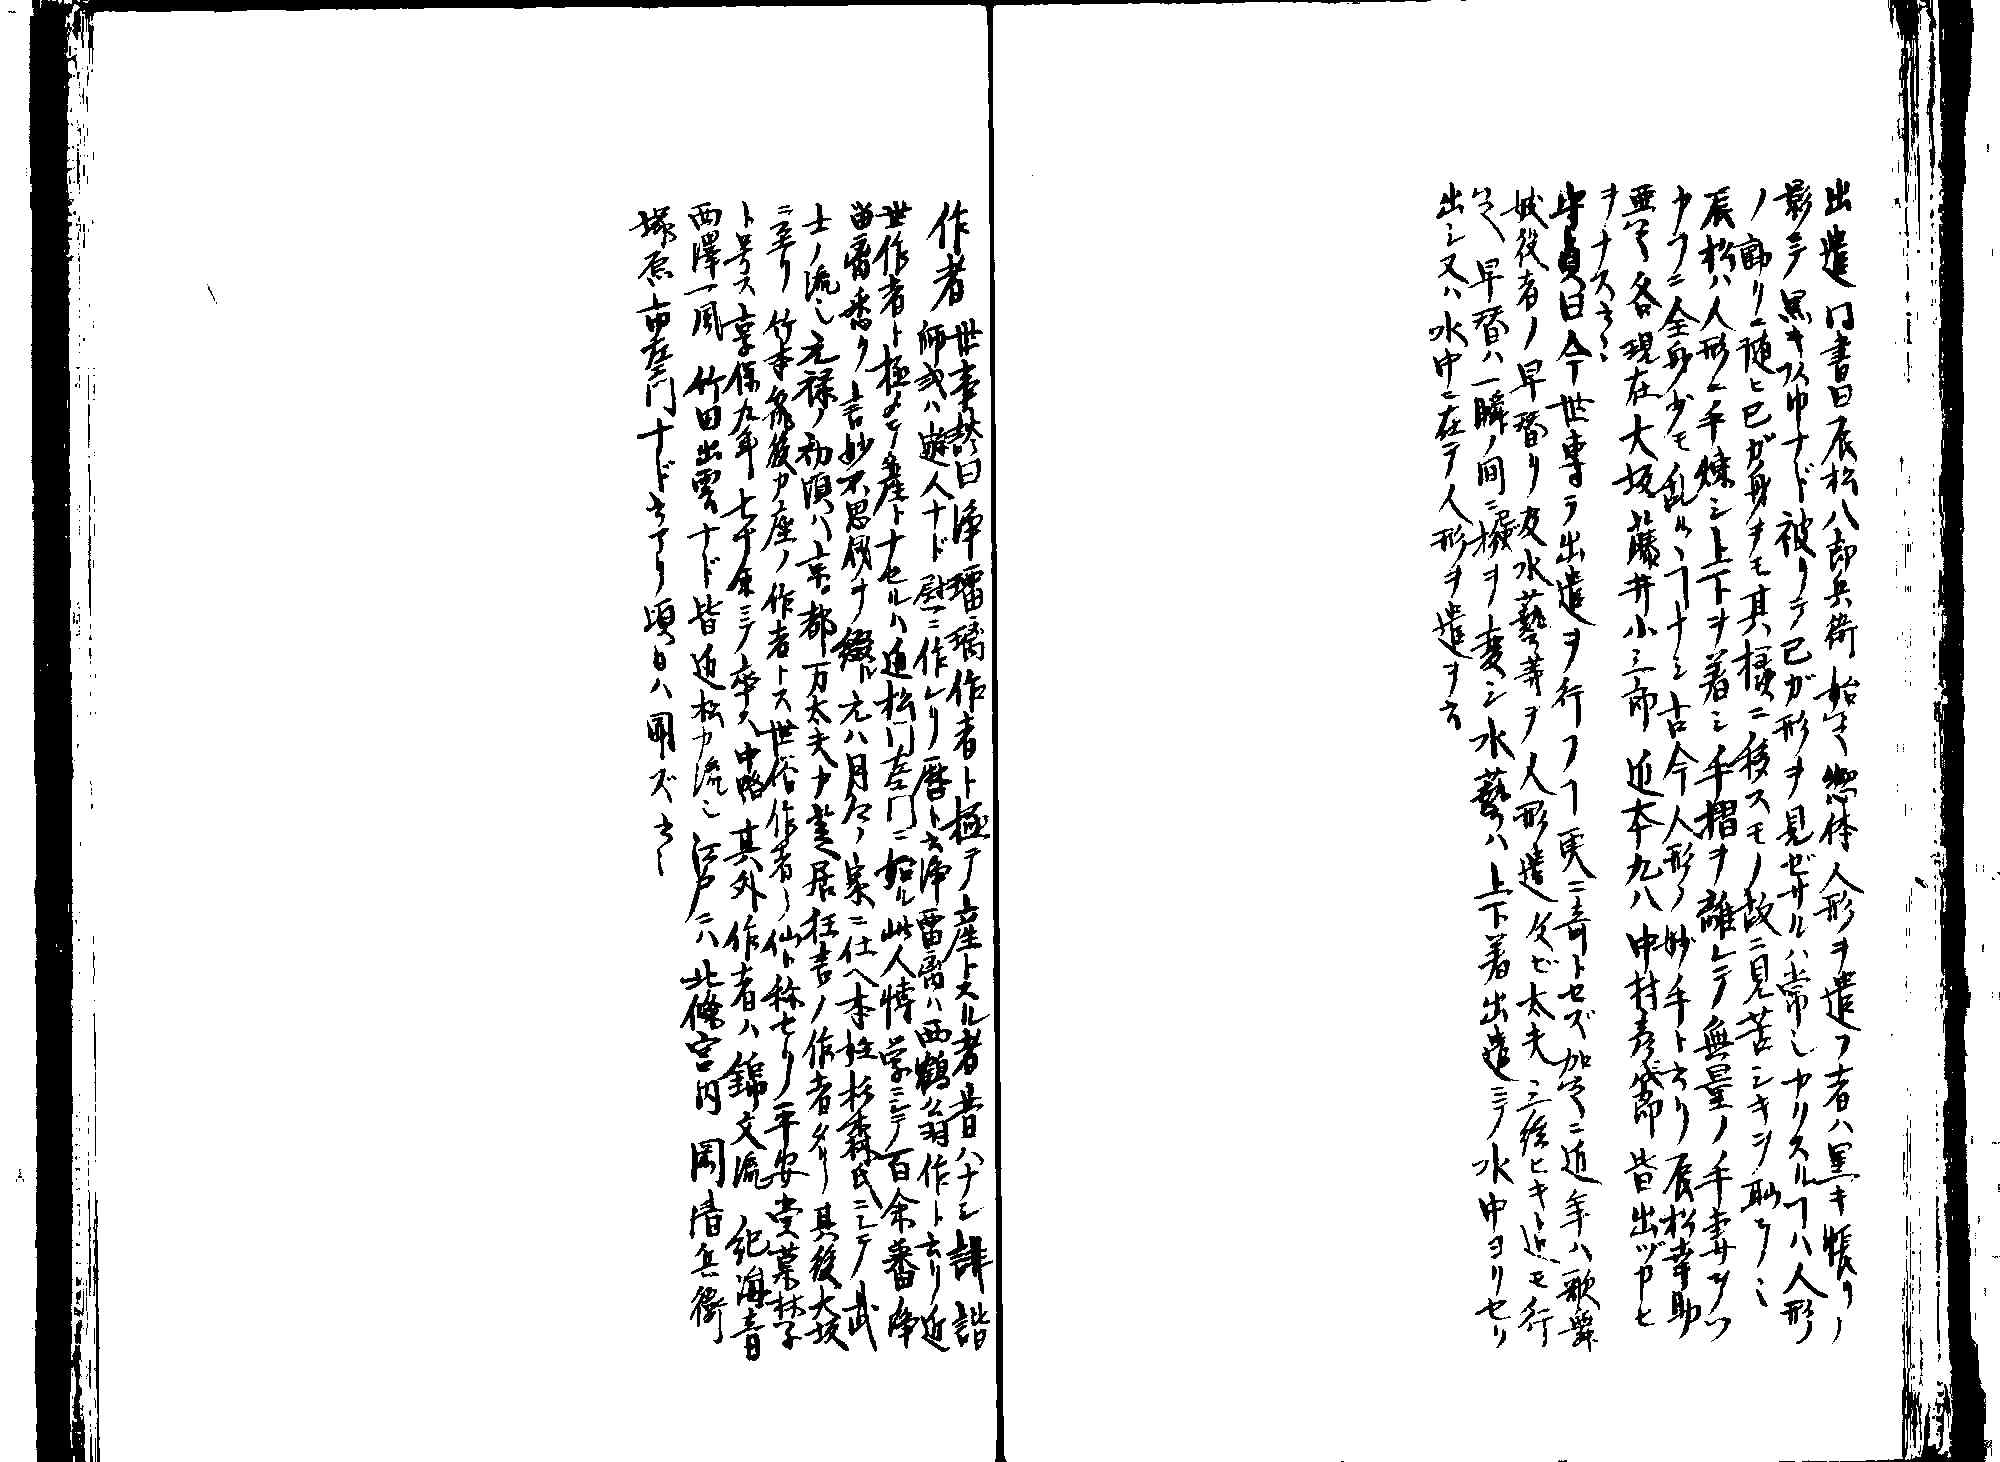 出遣 同書曰辰松八郎兵衛始テ惣体人形ヲ遣フ者ハ黒キ帳リノ
影ニテ黒キ頭巾ナド被リテ己ガ形ヲ見ゼザルハ常也カリスルヿハ人形
ノ飾リニ随ヒ己ガ身ヲモ其様ニ移スモノ故ニ見苦シキヲ恥テ也
辰松ハ人形ニ手煉シ上下ヲ着シ手摺ヲ離レテ無量ノ手妻ヲツ
カフニ全身少モ乱ルヽヿナシ古今人形ノ妙手ト云リ辰松幸助
亜テ各現在大坂藤井小三郎近本九八中村彦三郎皆出ヅカヒ
ヲナス云々
守貞曰今世専ラ出遣ヲ行フヿ更ニ奇トセズ加之ニ近年ハ歌舞
妓役者ノ早替リ及水藝等ヲ人形遣及ビ太夫三絃ヒキト迄モ行
之早替ハ一瞬ノ間ニ撥ヲ変シ水藝ハ上下着出遣ニテ水中ヨリセリ
出シ又ハ水中ニ在テ人形ヲ遣ヲ云
作者 世事談曰浄瑠璃作者ト極テ産トスル者昔ハナシ誹諧
師或ハ遊人ナド慰ニ作レリ暦ト云浄瑠璃ハ西鶴翁作ト云リ近
世作者ト極メテ産トナセルハ近松門左衛門ニ始ル此人博学ニシテ百余番浄
留理悉ク言妙不思儀ヲ綴ル元ハ月卿ノ家ニ仕ヘ本姓杉森氏ニシテ武
士ノ流也元禄ノ初頃ハ京都万太夫カ芝居狂言ノ作者タリ其後大坂
ニ至リ竹本筑後カ座ノ作者トス世俗作者ノ仙ト称セリ平安堂巣林子
ト号ス享保九年七十余ニテ卒ス中略其外作者ハ錦文流 紀海音
西澤一風 竹田出雲ナド皆近松カ流也江戸ニハ北條宮内 岡清兵衛
塚原市左衛門ナド云アリ頃日ハ聞ズ云々